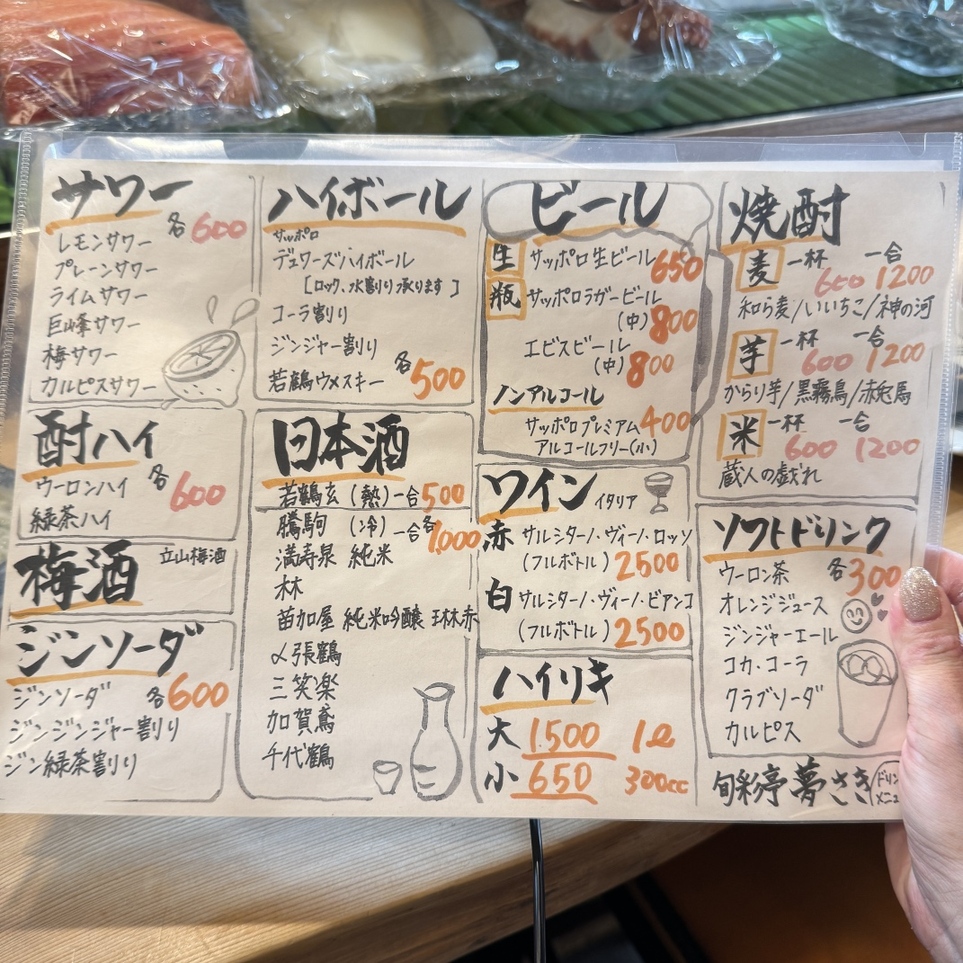 サワー 各600
レモンサワー
プレーンサワー
ライムサワー
巨峰サワー
梅サワー
カルピスサワー
酎ハイ
ウーロンハイ 各600
緑茶ハイ
梅酒 立山梅酒
ジンソーダ
ジンソーダ 各600
ジンジンジャー割り
ジン緑茶割り
ハイボール
サッポロ
デュワーズハイボール
[ロック、水割り承ります]
コーラ割り
ジンジャー割り
若鶴ウメスキー 各500
日本酒
若鶴玄(熱)一合500
騰駒(冷)一合各1,000
満寿泉 純米
林
苗加屋 純米吟醸 琳赤
〆張鶴
三笑楽
加賀鳶
千代鶴
ビール
生 サッポロ生ビール650
瓶 サッポロラガービール
(中)800
エビスビール
(中)800
ノンアルコール
サッポロプレミアム400
アルコールフリー(小)
ワイン イタリア
赤 サルシターノ・ヴィーノ・ロッソ
(フルボトル)2500
白 サルシターノ・ヴィーノ・ビアンコ
(フルボトル)2500
ハイリキ
大 1500 1ℓ
小 650 300cc
焼酎
麦 一杯600 一合1200
和ら麦/いいちこ/神の河
芋 一杯600 一合1200
からり芋/黒霧島/赤兎馬
米 一杯600 一合1200
蔵人の戯れ
ソフトドリンク
ウーロン茶 各300
オレンジジュース
ジンジャーエール
コカ・コーラ
クラブソーダ
カルピス
旬彩亭 夢さき
ドリン
メニュ